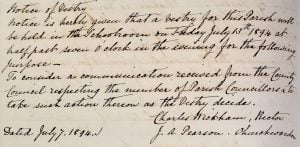 Notice of Vestry
Notice is hereby given that a Vestry for this Parish will
be held in the Schoolroom on Friday July 13th 1894 at
half past seven o'clock in the evening for the following
purpose —
To consider a communication received from the County
Council respecting the number of Parish Councillors & to
take such action thereon as the Vestry decide.
Charles Wickham, Rector
J. A. Pearson. Churchwarden
Dated. July 7. 1894.